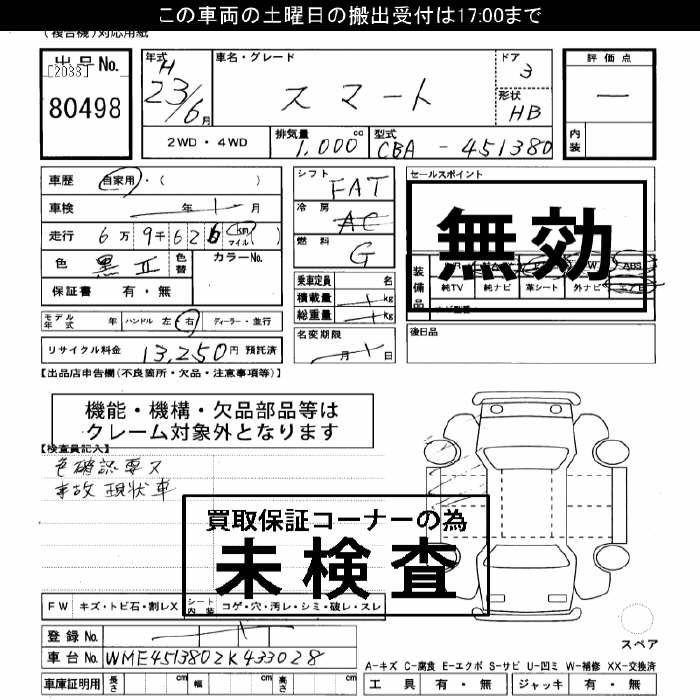 この車両の土曜日の搬出受付は17:00まで
(複合機)対応用紙
出品No.
[2033]
80498
年式 H 23/6月
車名・グレード
スマート
ドア 3
形状 HB
評価点
―
内装
2WD・4WD
排気量 1,000 cc
型式 CBA - 451380
車歴 自家用・( )
車検 年 月
走行 6万9千626 km マイル ( )
色 黒 色替 カラーNo.
保証書 有・無
モデル年式 年 ハンドル 左 右 ディーラー・並行
リサイクル料金 13,250円 預託済
シフト FAT
冷房 AC
燃料 G
乗車定員 名
積載量 kg
総重量 kg
名変期限 月 日
セールスポイント
無効
装備品 ABS
純TV 純ナビ 革シート 外ナビ
後日品
【出品店申告欄(不良箇所・欠品・注意事項等)】
機能・機構・欠品部品等は
クレーム対象外となります
【検査員記入】
色確認要ス
事故 現状車
買取保証コーナーの為
未検査
FW キズ・トビ石・割レX シート内装 コゲ・穴・汚レ・シミ・破レ・スレ
登録No.
車台No. WME4513802K433028
車庫証明用 長さ cm 幅 cm 高さ cm
スペア
A-キズ C-腐食 E-エクボ S-サビ U-凹ミ W-補修 XX-交換済
工具 有・無 ジャッキ 有・無